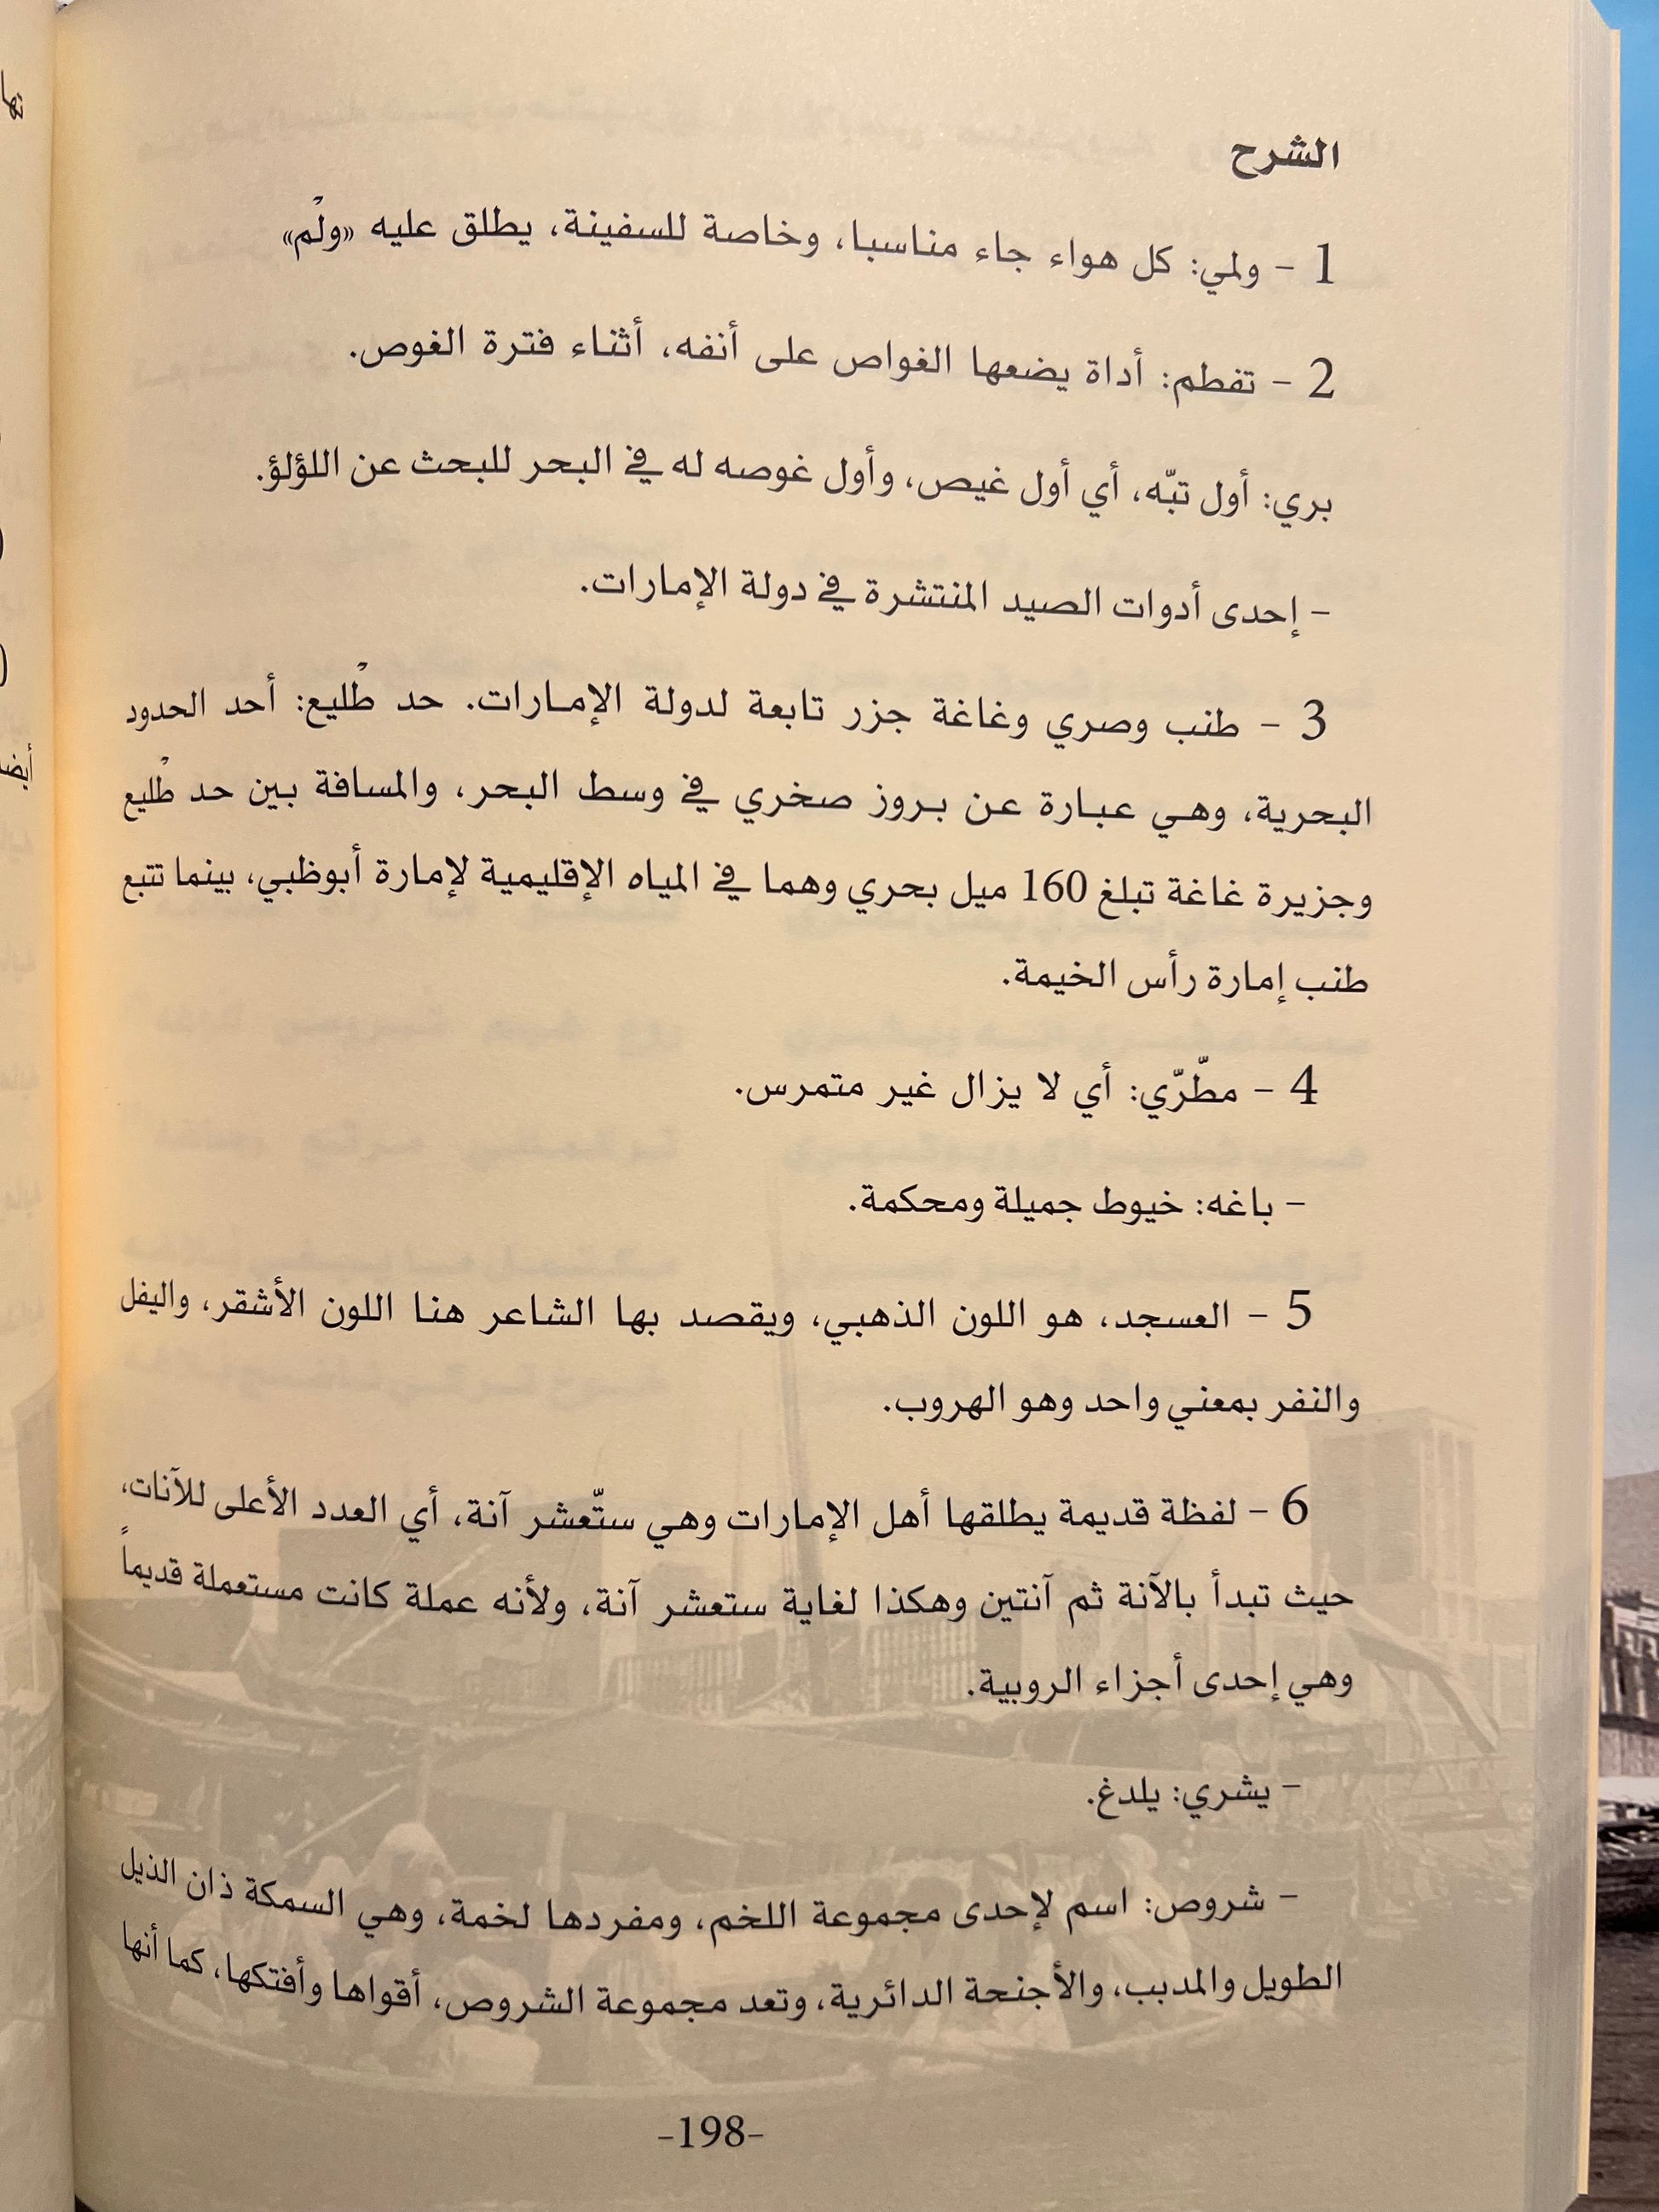 الشرح
1 - ولمي: كل هواء جاء مناسبا، وخاصة للسفينة، يطلق عليه «ولْم»
2 - تفطم: أداة يضعها الغواص على أنفه، أثناء فترة الغوص.
بري: أول تبّه، أي أول غيص، وأول غوصه له في البحر للبحث عن اللؤلؤ.
- إحدى أدوات الصيد المنتشرة في دولة الإمارات.
3 - طنب وصري وغاغة جزر تابعة لدولة الإمارات. حد طْليع: أحد الحدود
البحرية، وهي عبارة عن بروز صخري في وسط البحر، والمسافة بين حد طْليع
وجزيرة غاغة تبلغ 160 ميل بحري وهما في المياه الإقليمية لإمارة أبوظبي، بينما تتبع
طنب إمارة رأس الخيمة.
4 - مطّرّي: أي لا يزال غير متمرس.
- باغه: خيوط جميلة ومحكمة.
5 - العسجد، هو اللون الذهبي، ويقصد بها الشاعر هنا اللون الأشقر، واليفل
والنفر بمعني واحد وهو الهروب.
6 - لفظة قديمة يطلقها أهل الإمارات وهي ستّعشر آنة، أي العدد الأعلى للآنات،
حيث تبدأ بالآنة ثم آنتين وهكذا لغاية ستعشر آنة، ولأنه عملة كانت مستعملة قديماً
وهي إحدى أجزاء الروبية.
- يشري: يلدغ.
- شروص: اسم لإحدى مجموعة اللخم، ومفردها لخمة، وهي السمكة ذان الذيل
الطويل والمدبب، والأجنحة الدائرية، وتعد مجموعة الشروص، أقواها وأفتكها، كما أنها
-198-